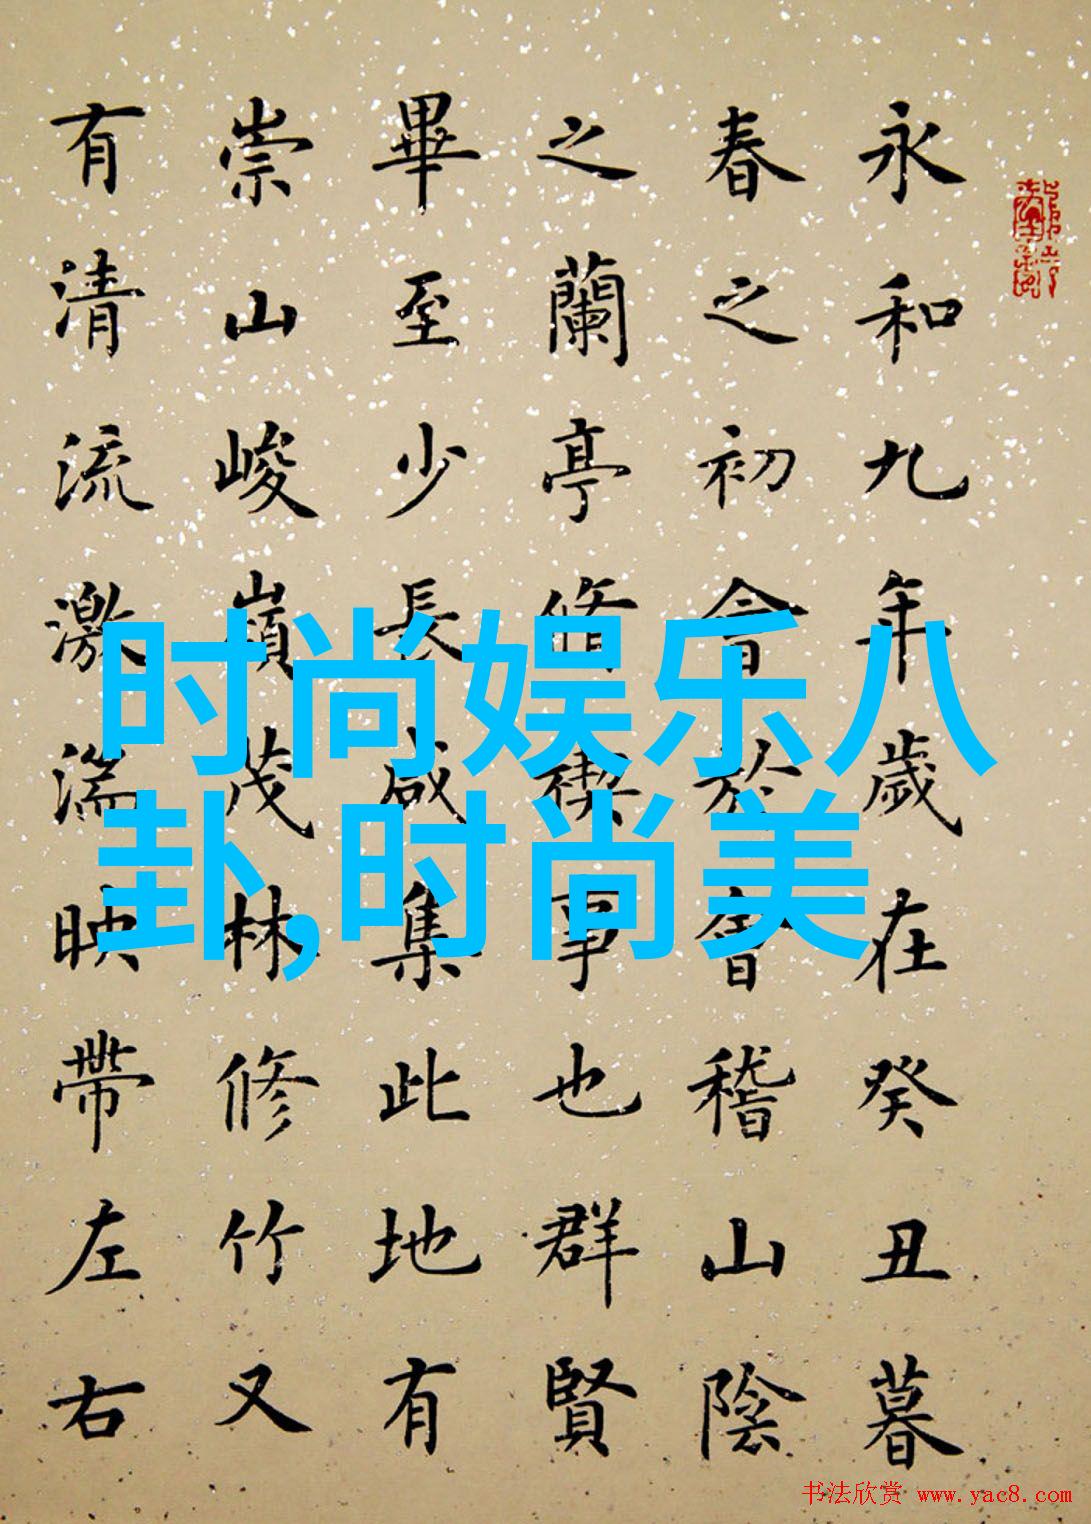 永和九年歲在癸丑暮
春之初會於會稽山陰
之蘭亭脩禊事也群賢
畢至少長咸集此地有
崇山峻嶺茂林修竹又
有清流激湍映帶左右
时尚娱乐八
卦,时尚美
书法欣赏 www.yac8.com